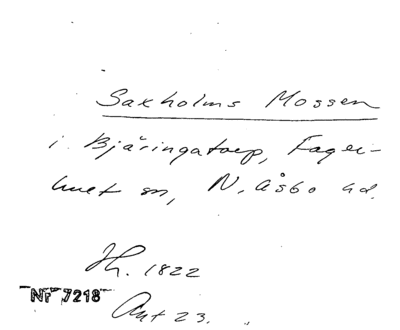 Saxholms Mossen
i Bjäringatorp, Fager-
hult sn, N. Åsbo hd.
Th. 1822
NF 7218
Ant 23.